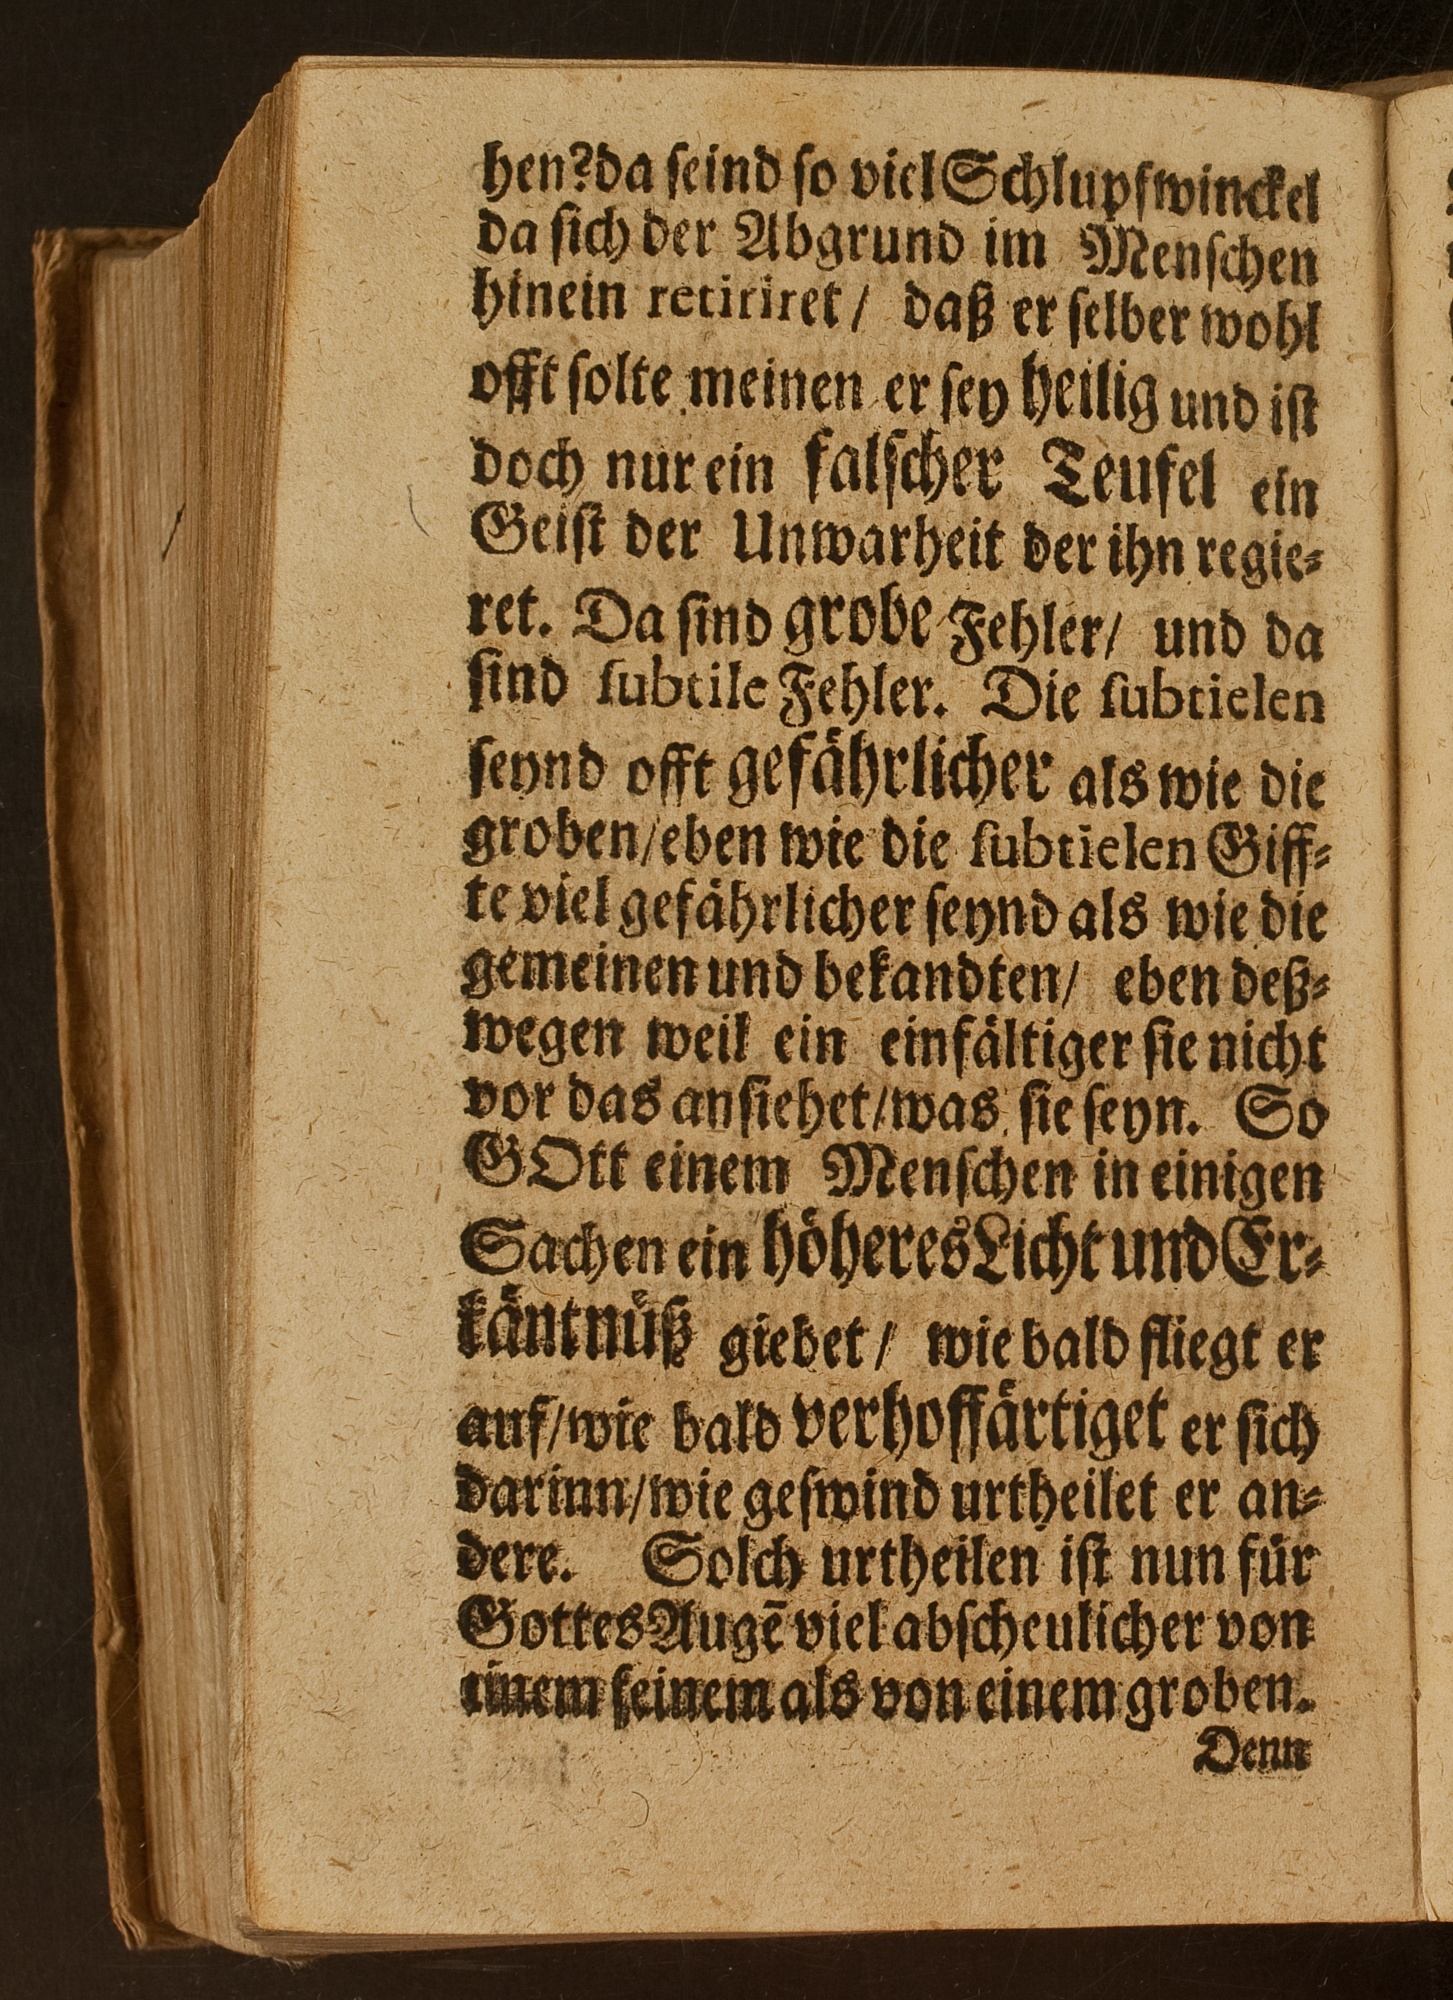 hen?da seind so viel Schlupfwinckel
da sich der Abgrund im Menschen
hinein retiriret / daß er selber wohl
offt solte meinen er sey heilig und ist
doch nur ein falscher Teufel ein
Geist der Unwarheit der ihn regie-
ret. Da sind grobe Fehler/ und da
sind subtile Fehler. Die subtielen
seynd offt gefährlicher als wie die
groben/eben wie die subtielen Giff-
te viel gefährlicher seynd als wie die
gemeinen und bekandten/ eben deß-
wegen weil ein einfältiger sie nicht
vor das ansiehet/was sie seyn. So
GOtt einem Menschen in einigen
Sachen ein höheres Licht und Er-
käntnüß giebet / wie bald fliegt er
auf/wie bald verhoffärtiget er sich
darinn/wie geswind urtheilet er an-
dere. Solch urtheilen ist nun für
Gottes Augē viel abscheulicher von
einem feinem als von einem groben.
Denn